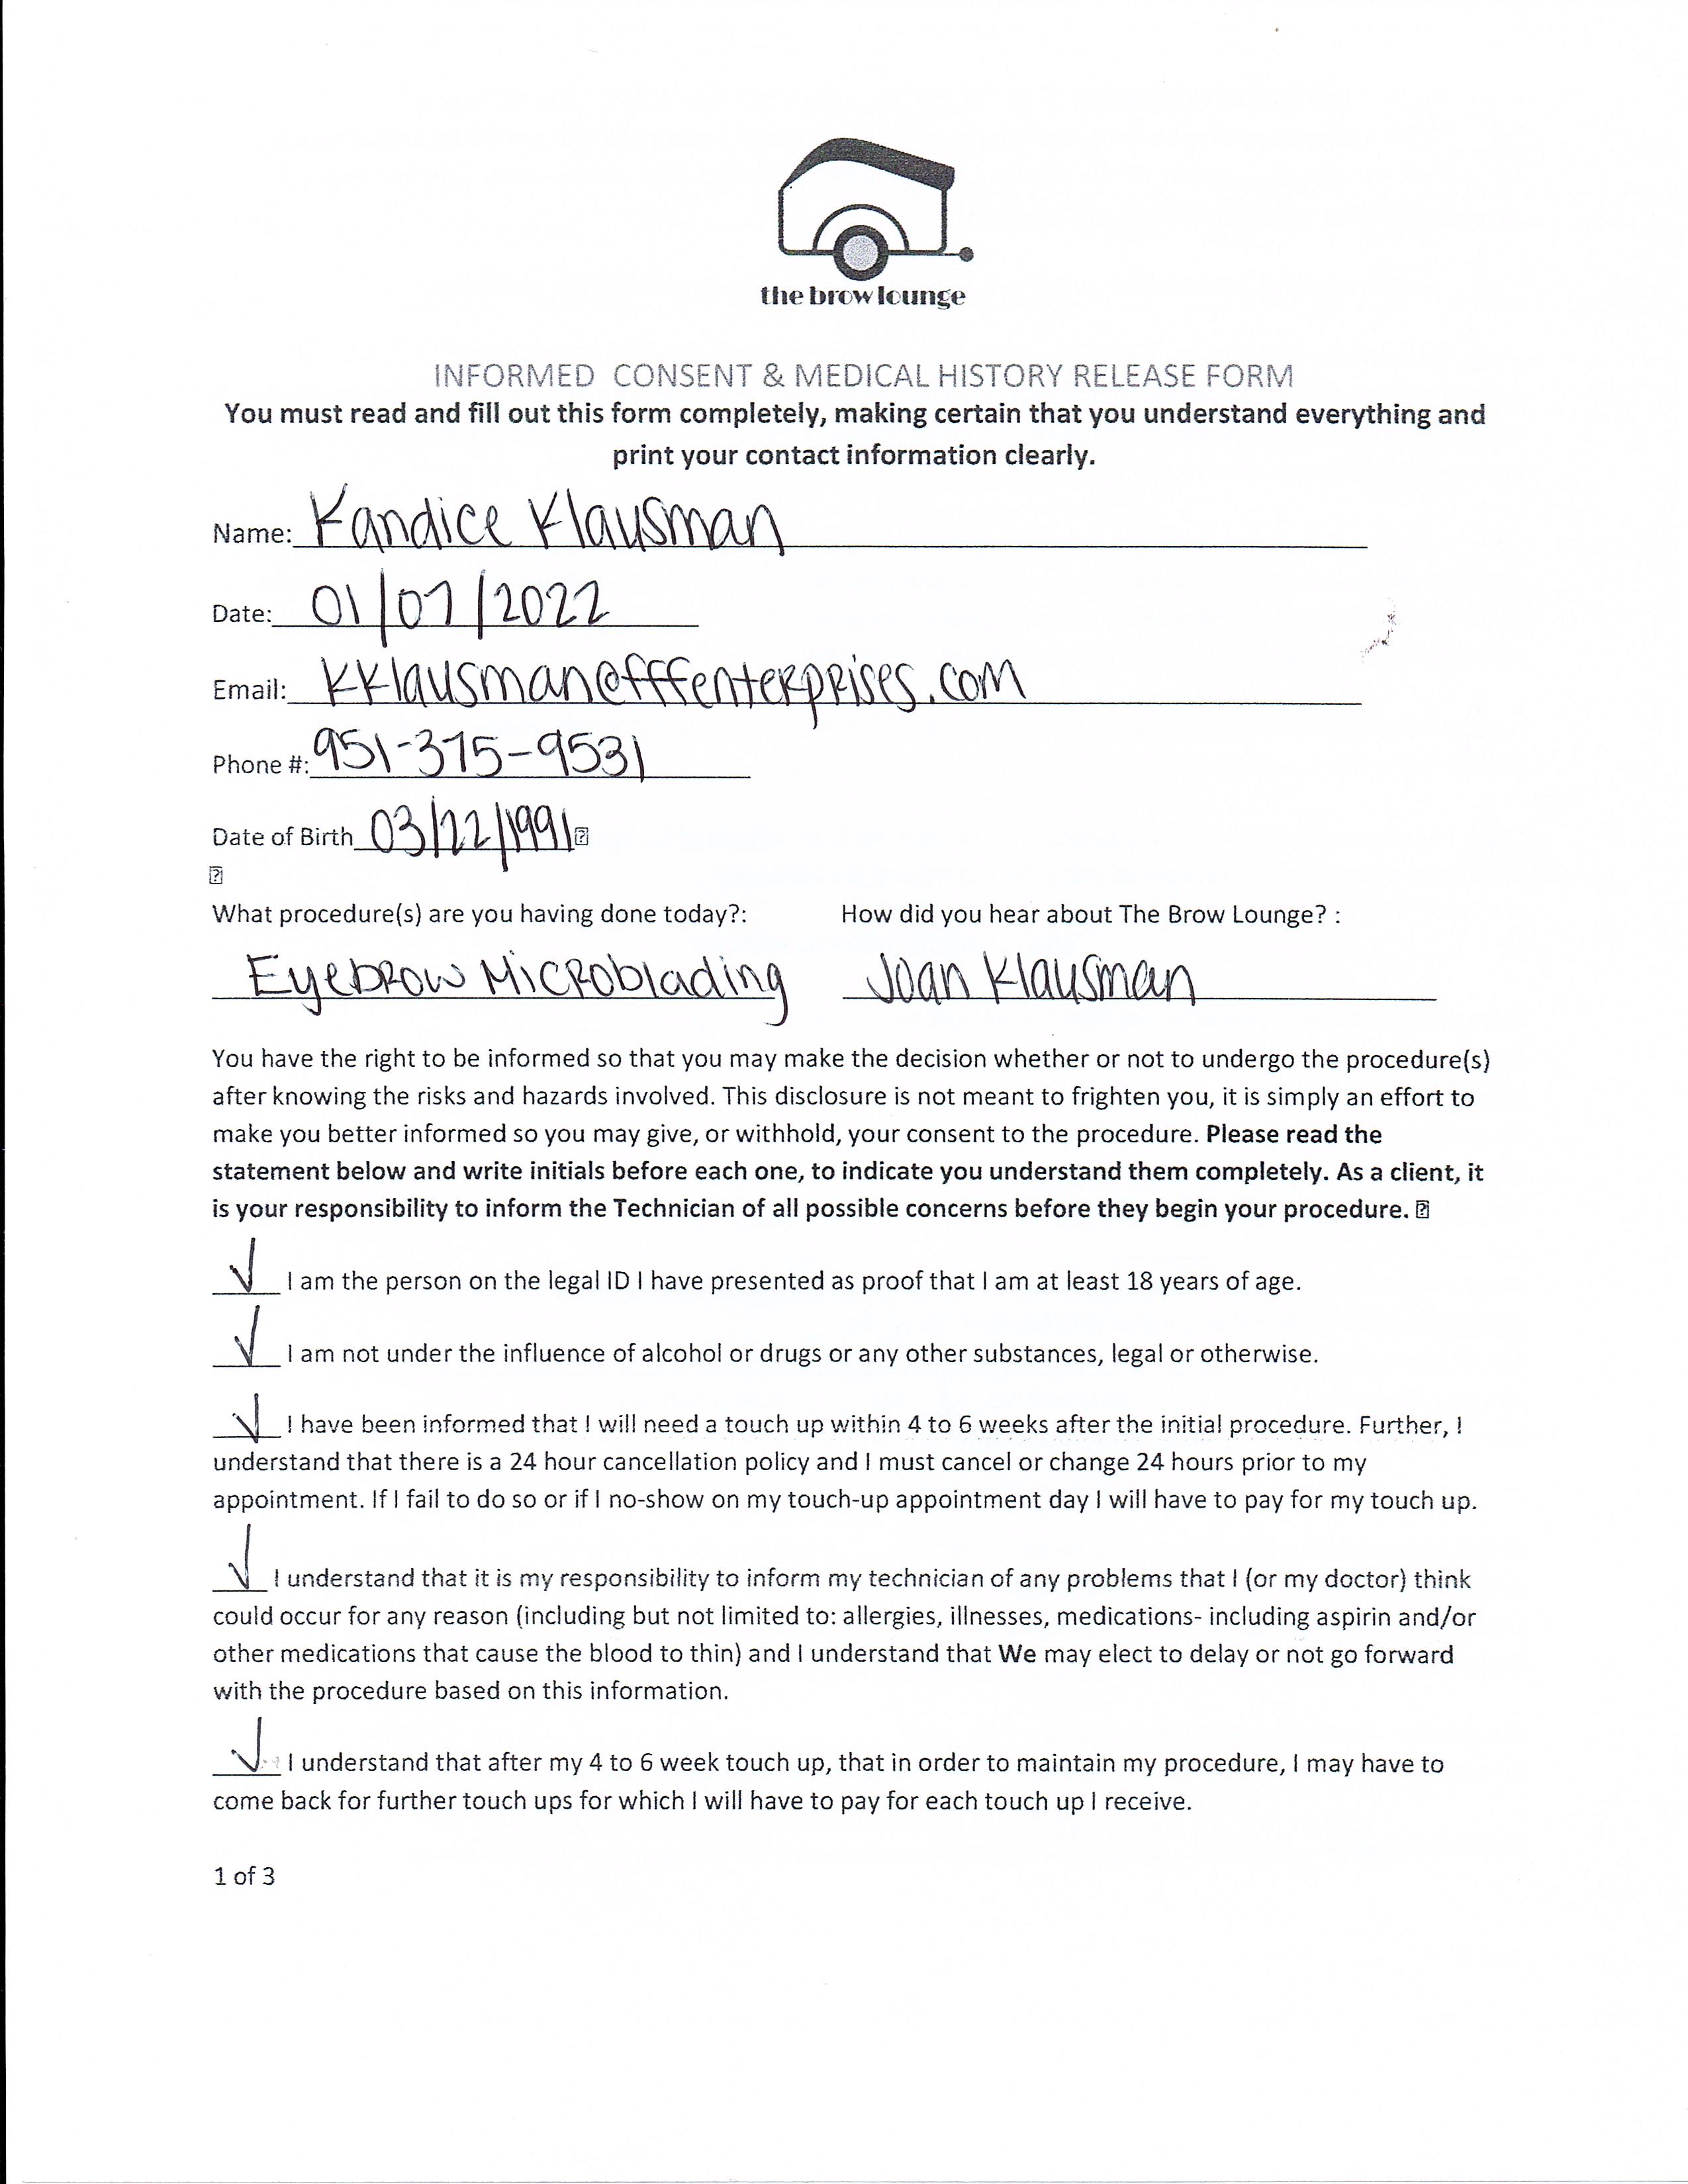 the brow lounge
INFORMED CONSENT & MEDICAL HISTORY RELEASE FORM
You must read and fill out this form completely, making certain that you understand everything and
print your contact information clearly.
Name: Kandice Klausman
Date: 01/07/2022
Email: kklausman@fffenterprises.com
Phone #: 951-375-9531
Date of Birth 03/22/1991
What procedure(s) are you having done today?: How did you hear about The Brow Lounge? :
Eyebrow Microblading Joan Klausman
You have the right to be informed so that you may make the decision whether or not to undergo the procedure(s)
after knowing the risks and hazards involved. This disclosure is not meant to frighten you, it is simply an effort to
make you better informed so you may give, or withhold, your consent to the procedure. Please read the
statement below and write initials before each one, to indicate you understand them completely. As a client, it
is your responsibility to inform the Technician of all possible concerns before they begin your procedure.
✓ I am the person on the legal ID I have presented as proof that I am at least 18 years of age.
✓ I am not under the influence of alcohol or drugs or any other substances, legal or otherwise.
✓ I have been informed that I will need a touch up within 4 to 6 weeks after the initial procedure. Further, I
understand that there is a 24 hour cancellation policy and I must cancel or change 24 hours prior to my
appointment. If I fail to do so or if I no-show on my touch-up appointment day I will have to pay for my touch up.
✓ I understand that it is my responsibility to inform my technician of any problems that I (or my doctor) think
could occur for any reason (including but not limited to: allergies, illnesses, medications- including aspirin and/or
other medications that cause the blood to thin) and I understand that We may elect to delay or not go forward
with the procedure based on this information.
✓ I understand that after my 4 to 6 week touch up, that in order to maintain my procedure, I may have to
come back for further touch ups for which I will have to pay for each touch up I receive.
1 of 3